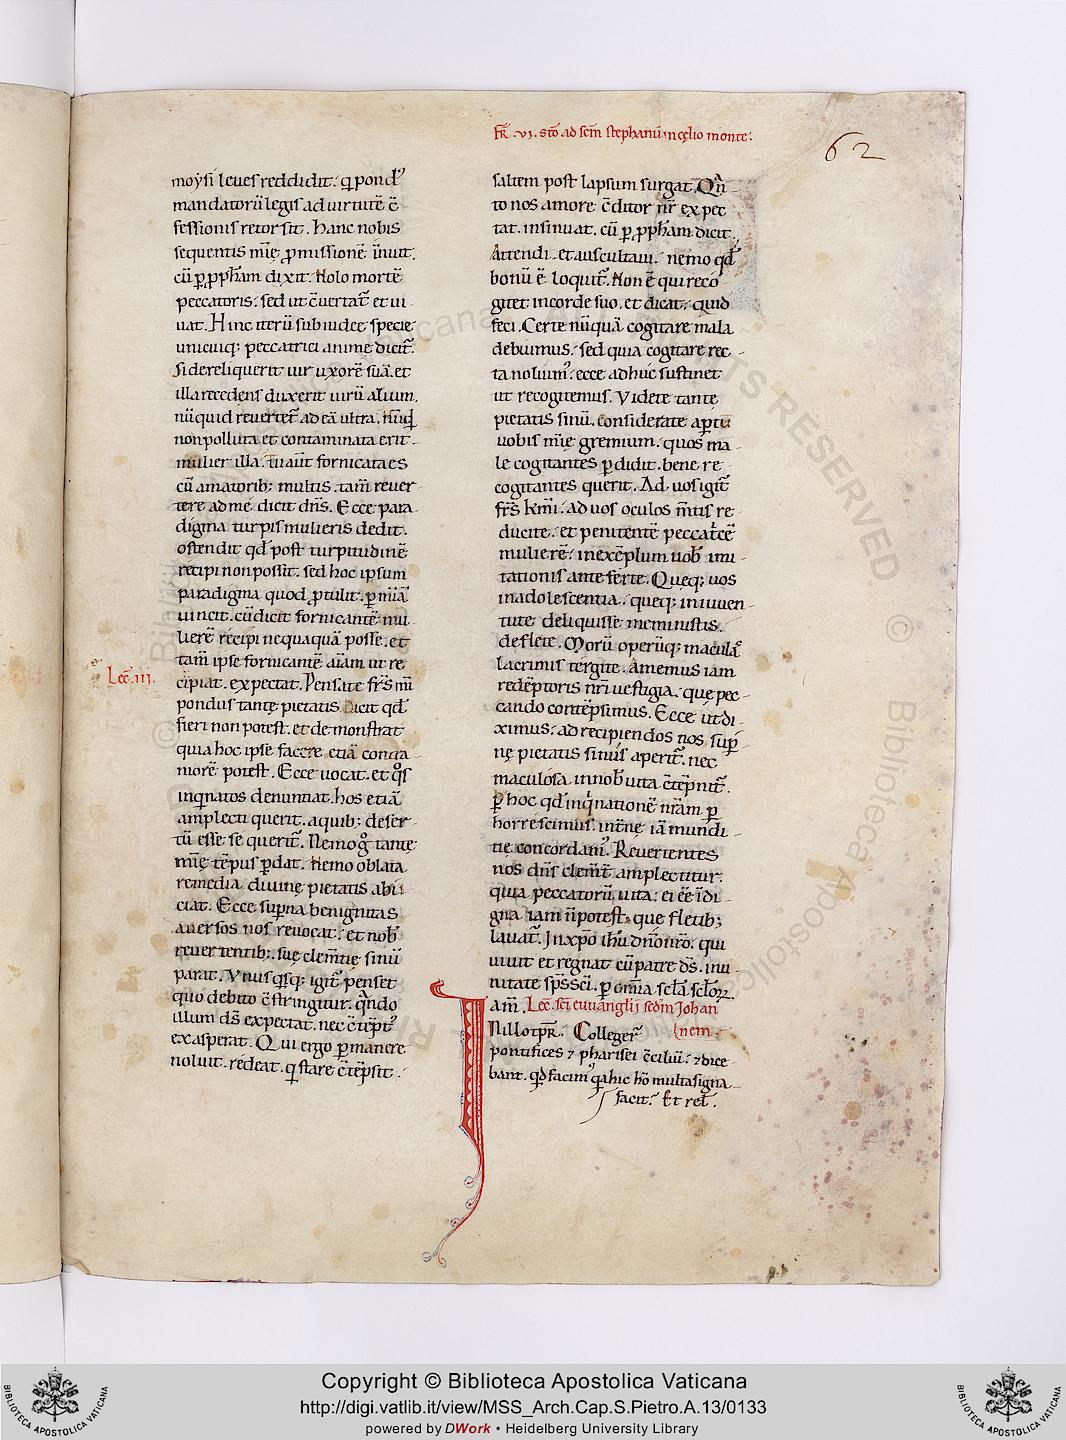 FR̃ .VI. STÕ ad sc̃m stephanũ in cęlio monte:
62
moẏsi leues reddidit. q̣ pondꝰ
mandatorũ legis ad uirtutẽ c̃
fessionis retorsit. Hanc nobis
sequentis mĩę ꝓmissionẽ ĩnuit.
cũ ꝑ ꝓpħam dixit. Nolo mortẽ
peccatoris. sed ut c̃uertat᷑ et ui
uat. Hinc iterũ sub iudee specie
unicuiq; peccatrici anime dicit᷑.
Si dereliquerit uir uxorẽ suã. et
illa recedens duxerit uirũ alium.
nũquid reuertet᷑ ad eã ultra. nũqd̛
non polluta et contaminata erit
mulier illa. Tu aũt fornicata es
cũ amatorib; multis. tam̃ reuer-
tere ad me. dicit dñs. Ecce para
digma turpis mulieris dedit.
ostendit qđ post turpitudinẽ
recipi non possit. sed hoc ipsum
paradigma quod ꝓtulit. ꝑ mĩam
uincit. cũ dicit fornicantẽ mu-
lierẽ recipi nequaquã posse. et
tam̃ ipse fornicantẽ aĩam ut re
Lec̃. III.
cipiat. expectat. Pensate fr̃s mi
pondus tantę pietatis. Dicit qđ
fieri non potest. et demonstrat
quia hoc ipse facere etiã contra
morẽ potest. Ecce uocat. et qͦs
inqͥnatos denuntiat. hos etiã
amplecti querit. a quib; deser-
tũ esse se querit᷑. Nemo gͦ tantę
mĩę tẽpus ꝑdat. Nemo oblata
remedia diuinę pietatis abi
ciat. Ecce suꝑna benignitas
auersos nos reuocat. et nob̃
reuertentib; suę clem̃tię sinũ
parat. Vnusqͥsq; igit᷑ penset
quo debito c̃stringitur. qͣndo
illum dš expectat. nec c̃tẽptꝰ
exasperat. Qui ergo ꝑmanere
noluit. redeat. qͥ stare c̃tẽpsit.
saltem post lapsum surgat. Qͣn
to nos amore c̃ditor nr̃ expec
tat. insinuat. cũ ꝑ ꝓpħam dicit.
Attendi. et auscultaui. nemo qđ
bonũ ẽ loquit᷑. Non ẽ qui reco
gitet in corde suo. et dicat. quid
feci. Certe nũquã cogitare mala
debuimus. sed quia cogitare rec-
ta noluimꝰ. ecce adhuc sustinet
ut recogitemus. Videte tantę
pietatis sinũ. considerate aꝑtũ
uobis mĩę gremium. quos ma
le cogitantes ꝑdidit. bene re
cogitantes querit. Ad uos igit᷑
fr̃s km̃i. ad uos oculos m̃tis re
ducite. et penitentẽ peccatͥcẽ
mulierẽ. in exẽplum uob̃ imi
tationis anteferte. Quęq; uos
in adolescentia. queq; in iuuen-
tute deliquisse meministis.
deflete. Morũ operũq; maculas
lacrimis tergite. Amemus iam
redẽptoris nr̃i uestigia. que pec-
cando contẽpsimus. Ecce ut di-
ximus. ad recipiendos nos suꝑ-
nę pietatis sinus aperit᷑. nec
maculosa in nob̃ uita c̃tẽpnit᷑.
ꝑ hoc qđ inqͥnationẽ nr̃am ꝑ
horrescimus. int̃nę iã mundi-
tię concordamꝰ. Reuertentes
nos dñs clem̃t᷑ amplectitur.
quia peccatorũ uita. ei ẽẽ ĩdi-
gna iam ñ potest. que fletib;
lauat᷑. In xp̃o ih̃u dño nr̃o. qui
uiuit et regnat cũ patre dš. in u
nitate sp̃s sc̃i. ꝑ om̃ia scl̃a scl̃oꝝ.
am̃. Lec̃. sc̃i euuangl̃ij scd̃m Johan
nem.
IN illo tp̃r. Colleger̃
pontifices ⁊ pharisei c̃ciliũ. ⁊ dice-
bant. qͥd facimꝰ qͣ hic hõ multa signa
facit. Et rel̃.
Copyright © Biblioteca Apostolica Vaticana
http://digi.vatlib.it/view/MSS_Arch.Cap.S.Pietro.A.13/0133
powered by DWork • Heidelberg University Library